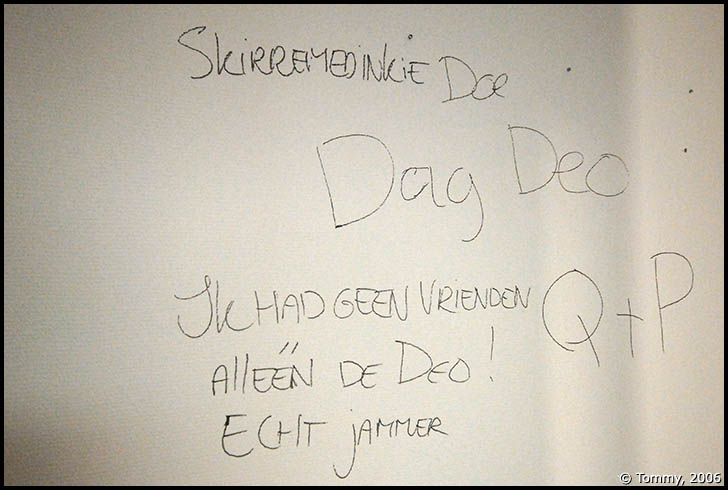 SKIRREMEDINKIE Doe
Dag Deo
Ik HAD GEEN VRIENDEN
Q + P
AllEËN DE DEO!
ECHT jAMMER
© Tommy, 2006